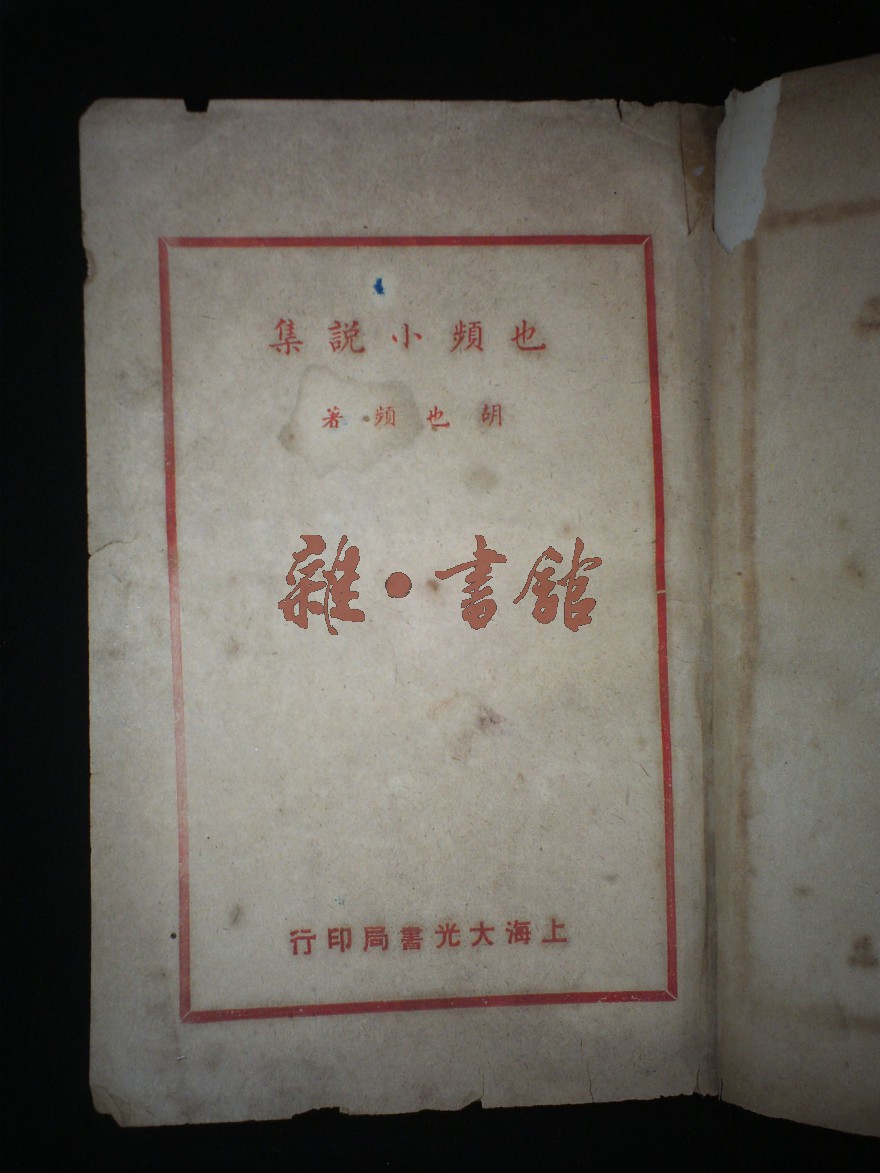 也頻小説集
胡也頻著
雜·書館
上海大光書局印行